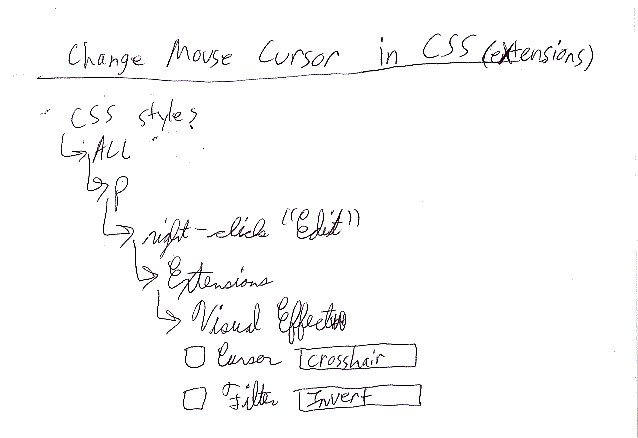 Change Mouse Cursor in CSS (extensions)
CSS styles
ALL
P
right-click "Edit"
Extensions
Visual Effect
Cursor crosshair
Filter Invert